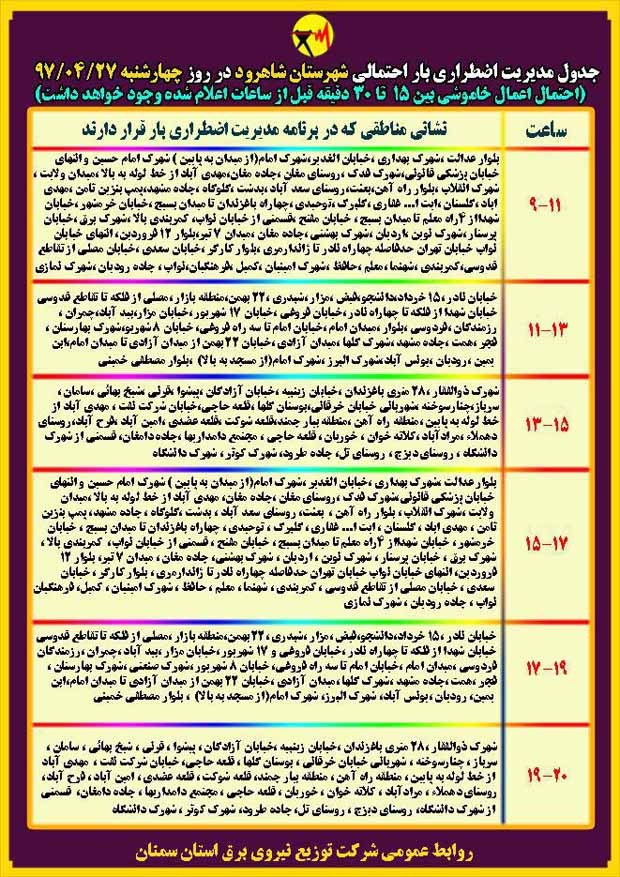 جدول مدیریت اضطراری بار احتمالی شهرستان شاهرود در روز چهارشنبه ۹۷/۰۴/۲۷
(احتمال اعمال خاموشی بین ۱۵ تا ۳۰ دقیقه قبل از ساعات اعلام شده وجود خواهد داشت)
ساعت
نشانی مناطقی که در برنامه مدیریت اضطراری بار قرار دارند
۹-۱۱
بلوار عدالت ،شهرک بهداری ،خیابان الغدیر،شهرک امام(از میدان به پایین ) شهرک امام حسین و انتهای
خیابان پزشکی قانونی،شهرک فدک ،روستای مغان ،جاده مغان،مهدی آباد از خط لوله به بالا،میدان ولایت ،
شهرک انقلاب ،بلوار راه آهن،بعثت،روستای سعد آباد ،بدشت ،گلوگاه ،جاده مشهد،پمپ بنزین ثامن ،مهدی
اباد ، گلستان ، ایت ا... غفاری ، گلبرک ،توحیدی ،چهاراه باغزندان تا میدان بسیج ،خیابان خرمشهر،خیابان
شهدااز ۴راه معلم تا میدان بسیج ، خیابان مفتح ،قسمتی از خیابان نواب، کمربندی بالا ،شهرک برق ،خیابان
پرستار ،شهرک نوین ،اردیان ،شهرک بهشتی ،جاده مغان ،میدان ۷ تیر،بلوار ۱۲ فروردین، انتهای خیابان
نواب خیابان تهران حدفاصله چهاراه نادر تا ژاندارمری ،بلوار کارگر ،خیابان سعدی ،خیابان مصلی از تقاطع
قدوسی،کمربندی ،شهنما، معلم ،حافظ ،شهرک امینیان ،کمیل ،فرهنگیان،نواب ، جاده رودیان ،شهرک نمازی
۱۱-۱۳
خیابان نادر ،۱۵ خرداد،دانشجو،فیض ،مزار ،شیدری ،۲۲ بهمن،منطقه بازار ،مصلی از فلکه تا تقاطع قدوسی
خیابان شهدا از فلکه تا چهاراه نادر ،خیابان فروغی ، خیابان ۱۷ شهریور ،خیابان مزار،بید آباد،چمران ،
رزمندگان ،فردوسی ،بلوار ،میدان امام ،خیابان امام تا سه راه فروغی ،خیابان ۸ شهریور،شهرک بهارستان ،
فجر ،همت ،جاده مشهد ،شهرک گلها ،میدان آزادی ،خیابان ۲۲ بهمن از میدان آزادی تا میدان امام،ابن
یمین ، رودیان ،یونس آباد،شهرک البرز ،شهرک امام(از مسجد به بالا) ،بلوار مصطفی خمینی
۱۳-۱۵
شهرک ذوالفقار ،۲۸ متری باغزندان ،خیابان زینبیه ،خیابان آزادگان ،پیشوا ،قرنی ،شیخ بهائی ،سامان ،
سرباز،چنارسوخته ،شهربانی خیابان خرقانی،بوستان گلها ،قلعه حاجی،خیابان شرکت نفت ، مهدی آباد از
خط لوله به پایین ،منطقه راه آهن ،منطقه بیار جمند،قلعه شوکت ،قلعه عضدی ، امین آباد ،فرح آباد،روستای
دهملا، مرادآباد ،کلاته خوان ، خوریان ، قلعه حاجی ، مجتمع دامداریها ،جاده دامغان، قسمتی از شهرک
دانشگاه ، روستای دیزج ، روستای تل، جاده طرود، شهرک کوثر ، شهرک دانشگاه
۱۵-۱۷
بلوار عدالت ،شهرک بهداری ،خیابان الغدیر ،شهرک امام(از میدان به پایین ) شهرک امام حسین و انتهای
خیابان پزشکی قانونی،شهرک فدک ،روستای مغان ،جاده مغان،مهدی آباد از خط لوله به بالا ،میدان
ولایت ،شهرک انقلاب ،بلوار راه آهن ، بعثت، روستای سعد آباد ، بدشت ،گلوگاه ،جاده مشهد، پمپ بنزین
ثامن ، مهدی اباد ، گلستان ، ایت ا... غفاری ، گلبرک ، توحیدی ، چهاراه باغزندان تا میدان بسیج ، خیابان
خرمشهر ، خیابان شهدااز ۴راه معلم تا میدان بسیج ، خیابان مفتح ، قسمتی از خیابان نواب ، کمربندی بالا ،
شهرک برق ، خیابان پرستار ، شهرک نوین ، اردیان ، شهرک بهشتی ،جاده مغان ، میدان ۷ تیر، بلوار ۱۲
فروردین، انتهای خیابان نواب خیابان تهران حدفاصله چهاراه نادر تا ژاندارمری ،بلوار کارگر ، خیابان
سعدی ، خیابان مصلی از تقاطع قدوسی ، کمربندی ، شهنما ، معلم ، حافظ ، شهرک امینیان ، کمیل، فرهنگیان
نواب ، جاده رودیان ، شهرک نمازی
۱۷-۱۹
خیابان نادر ،۱۵ خرداد،دانشجو،فیض ، مزار ، شیدری ، ۲۲ بهمن،منطقه بازار ،مصلی از فلکه تا تقاطع قدوسی
خیابان شهدا از فلکه تا چهاراه نادر ،خیابان فروغی و ۱۷ شهریور ،خیابان مزار ،بید آباد ،چمران،رزمندگان
فردوسی ،میدان امام ،خیابان امام تا سه راه فروغی ، خیابان ۸ شهریور ،شهرک صنعتی ،شهرک بهارستان ،
فجر ،همت ،جاده مشهد ،شهرک گلها،میدان آزادی ، خیابان ۲۲ بهمن از میدان آزادی تا میدان امام،ابن
یمین، رودیان ،یونس آباد، شهرک البرز، شهرک امام(از مسجد به بالا) ، بلوار مصطفی خمینی
۱۹-۲۰
شهرک ذوالفقار ،۲۸ متری باغزندان ،خیابان زینبیه ،خیابان آزادگان ، پیشوا ، قرنی ، شیخ بهائی ، سامان ،
سرباز ، چنارسوخته ، شهربانی خیابان خرقانی ، بوستان گلها ، قلعه حاجی ،خیابان شرکت نفت ، مهدی آباد
از خط لوله به پایین ، منطقه راه آهن ، منطقه بیار جمند، قلعه شوکت ، قلعه عضدی ، امین آباد ، فرح آباد،
روستای دهملا، مرادآباد ، کلاته خوان ، خوریان ، قلعه حاجی ، مجتمع دامداریها ، جاده دامغان، قسمتی
از شهرک دانشگاه، روستای دیزج ، روستای تل، جاده طرود، شهرک کوثر ، شهرک دانشگاه
روابط عمومی شرکت توزیع نیروی برق استان سمنان